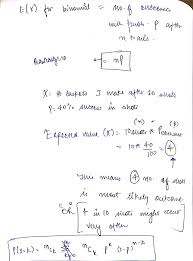 E(X) for binomial = no. of successes
with prob. P after
n trials.
= nP
X: # baskets I make after 10 shots
P: 40% success in shots
Expected value (X) = 10 shots * P
= 10 * 40/100 = 4
This means 4 no. of shots
is most likely outcome
4 in 10 shots might occur
very often
P(X=k) = nCk P^k (1-P)^n-k